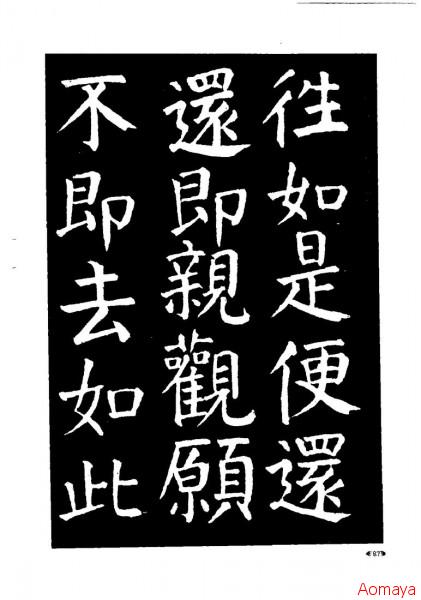 徃如是便還
還即親觀願
不即去如此
87
Aomaya